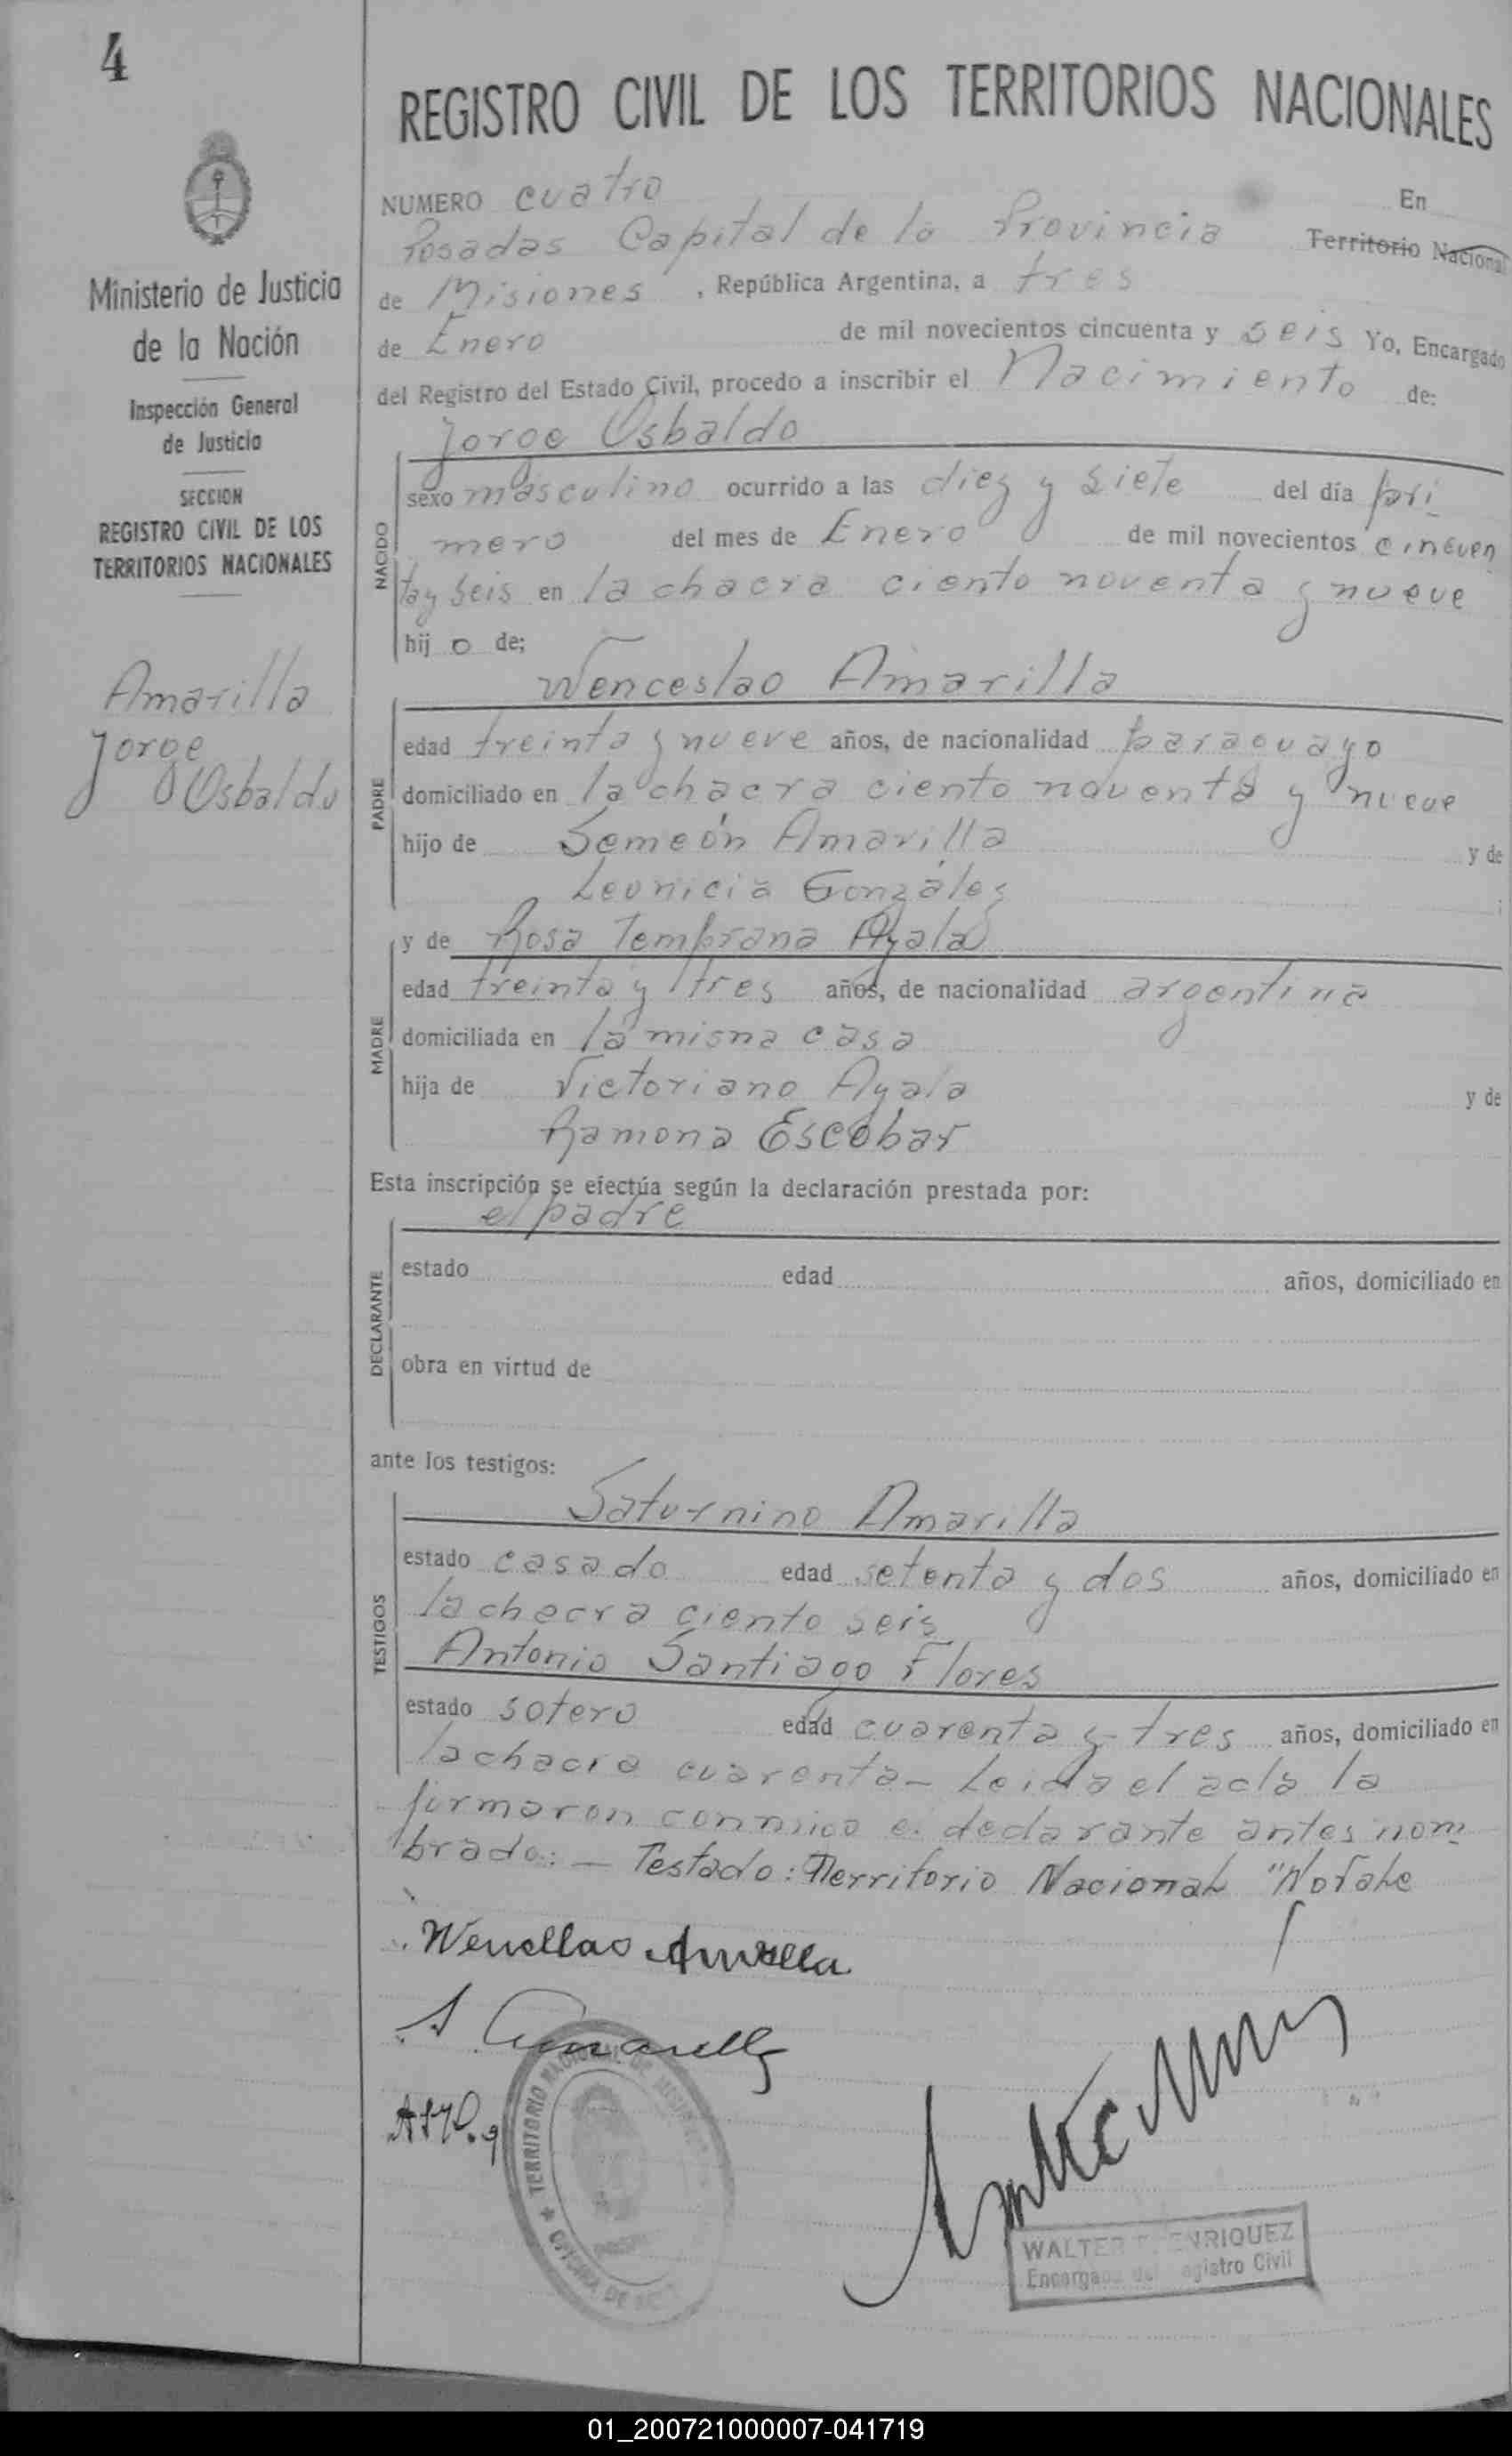 4
Ministerio de Justicia
de la Nación
Inspección General
de Justicia
SECCION
REGISTRO CIVIL DE LOS
TERRITORIOS NACIONALES
Amarilla
Jorge
Osbaldo
REGISTRO CIVIL DE LOS TERRITORIOS NACIONALES
NUMERO cuatro En
Posadas Capital de la Provincia Territorio Nacional
de Misiones, República Argentina, a tres
de Enero de mil novecientos cincuenta y seis Yo, Encargado
del Registro del Estado Civil, procedo a inscribir el Nacimiento de:
Jorge Osbaldo
NACIDO
sexo masculino ocurrido a las diez y siete del día pri
mero del mes de Enero de mil novecientos cincuen
ta y seis en la chacra ciento noventa y nueve
hijo de;
Wenceslao Amarilla
PADRE
edad treinta y nueve años, de nacionalidad paraguayo
domiciliado en la chacra ciento noventa y nueve
hijo de Semeón Amarilla y de
Leonicia Gonzáles
MADRE
y de Rosa Temprana Ayala
edad treinta y tres años, de nacionalidad argentina
domiciliada en la misma casa
hija de Victoriano Ayala y de
Ramona Escobar
Esta inscripción se efectúa según la declaración prestada por:
el padre
DECLARANTE
estado edad años, domiciliado en
obra en virtud de
ante los testigos:
TESTIGOS
Saturnino Amarilla
estado casado edad setenta y dos años, domiciliado en
la chacra ciento seis
Antonio Santiago Flores
estado sotero edad cuarenta y tres años, domiciliado en
la chacra cuarenta - Leida el acta la
firmaron conmigo el declarante antes nom
brado: - Testado: Territorio Nacional "No vale
Wencellao Amarilla
S Amarilla
TERRITORIO NACIONAL DE MISIONES
OFICINA DE
WALTER ENRIQUEZ
Encargado del Registro Civil
01_200721000007-041719